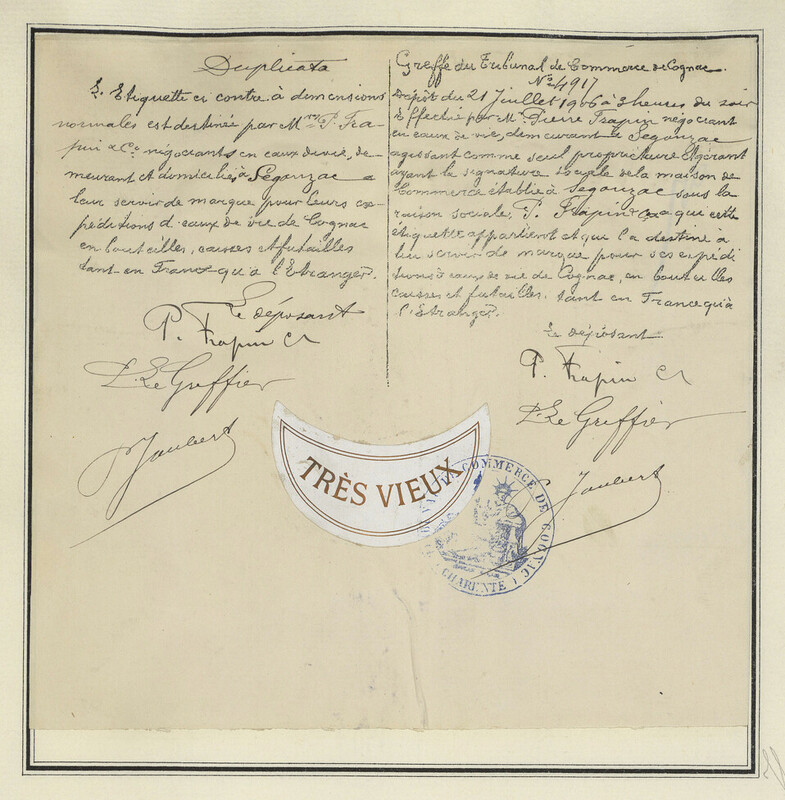 Duplicata
L'Etiquette ci contre à dimensions
normales est destinée par Mrs P. Fra-
pin & Co négociants en eaux de vie, de-
meurant et domiciliés à Segonzac a
leur servir de marque pour leurs ex-
péditions d'eaux de vie de Cognac
en bouteilles, caisses et futailles
tant en France qu'à l'Etranger.
Le déposant
P. Frapin Co
P. Le Greffier
Joubert
Greffe du Tribunal de Commerce de Cognac.
No 4917
Dépôt du 21 Juillet 1906 à 3 heures du soir
Effectué par Mr Pierre Frapin négociant
en eaux de vie, demeurant à Segonzac
agissant comme seul propriétaire Etgérant
ayant la signature sociale de la maison de
Commerce établie à Segonzac sous la
raison sociale, P. Frapin & Co a que cette
étiquette appartient et qui l'a destiné à
lui servir de marque pour ses expédi
tions d'eaux de vie de Cognac, en bouteilles
caisses et futailles. tant en France qu'à
l'étranger.
Le déposant
P. Frapin Co
P. Le Greffier
Joubert
TRÈS VIEUX
COMMERCE DE COGNAC
CHARENTE